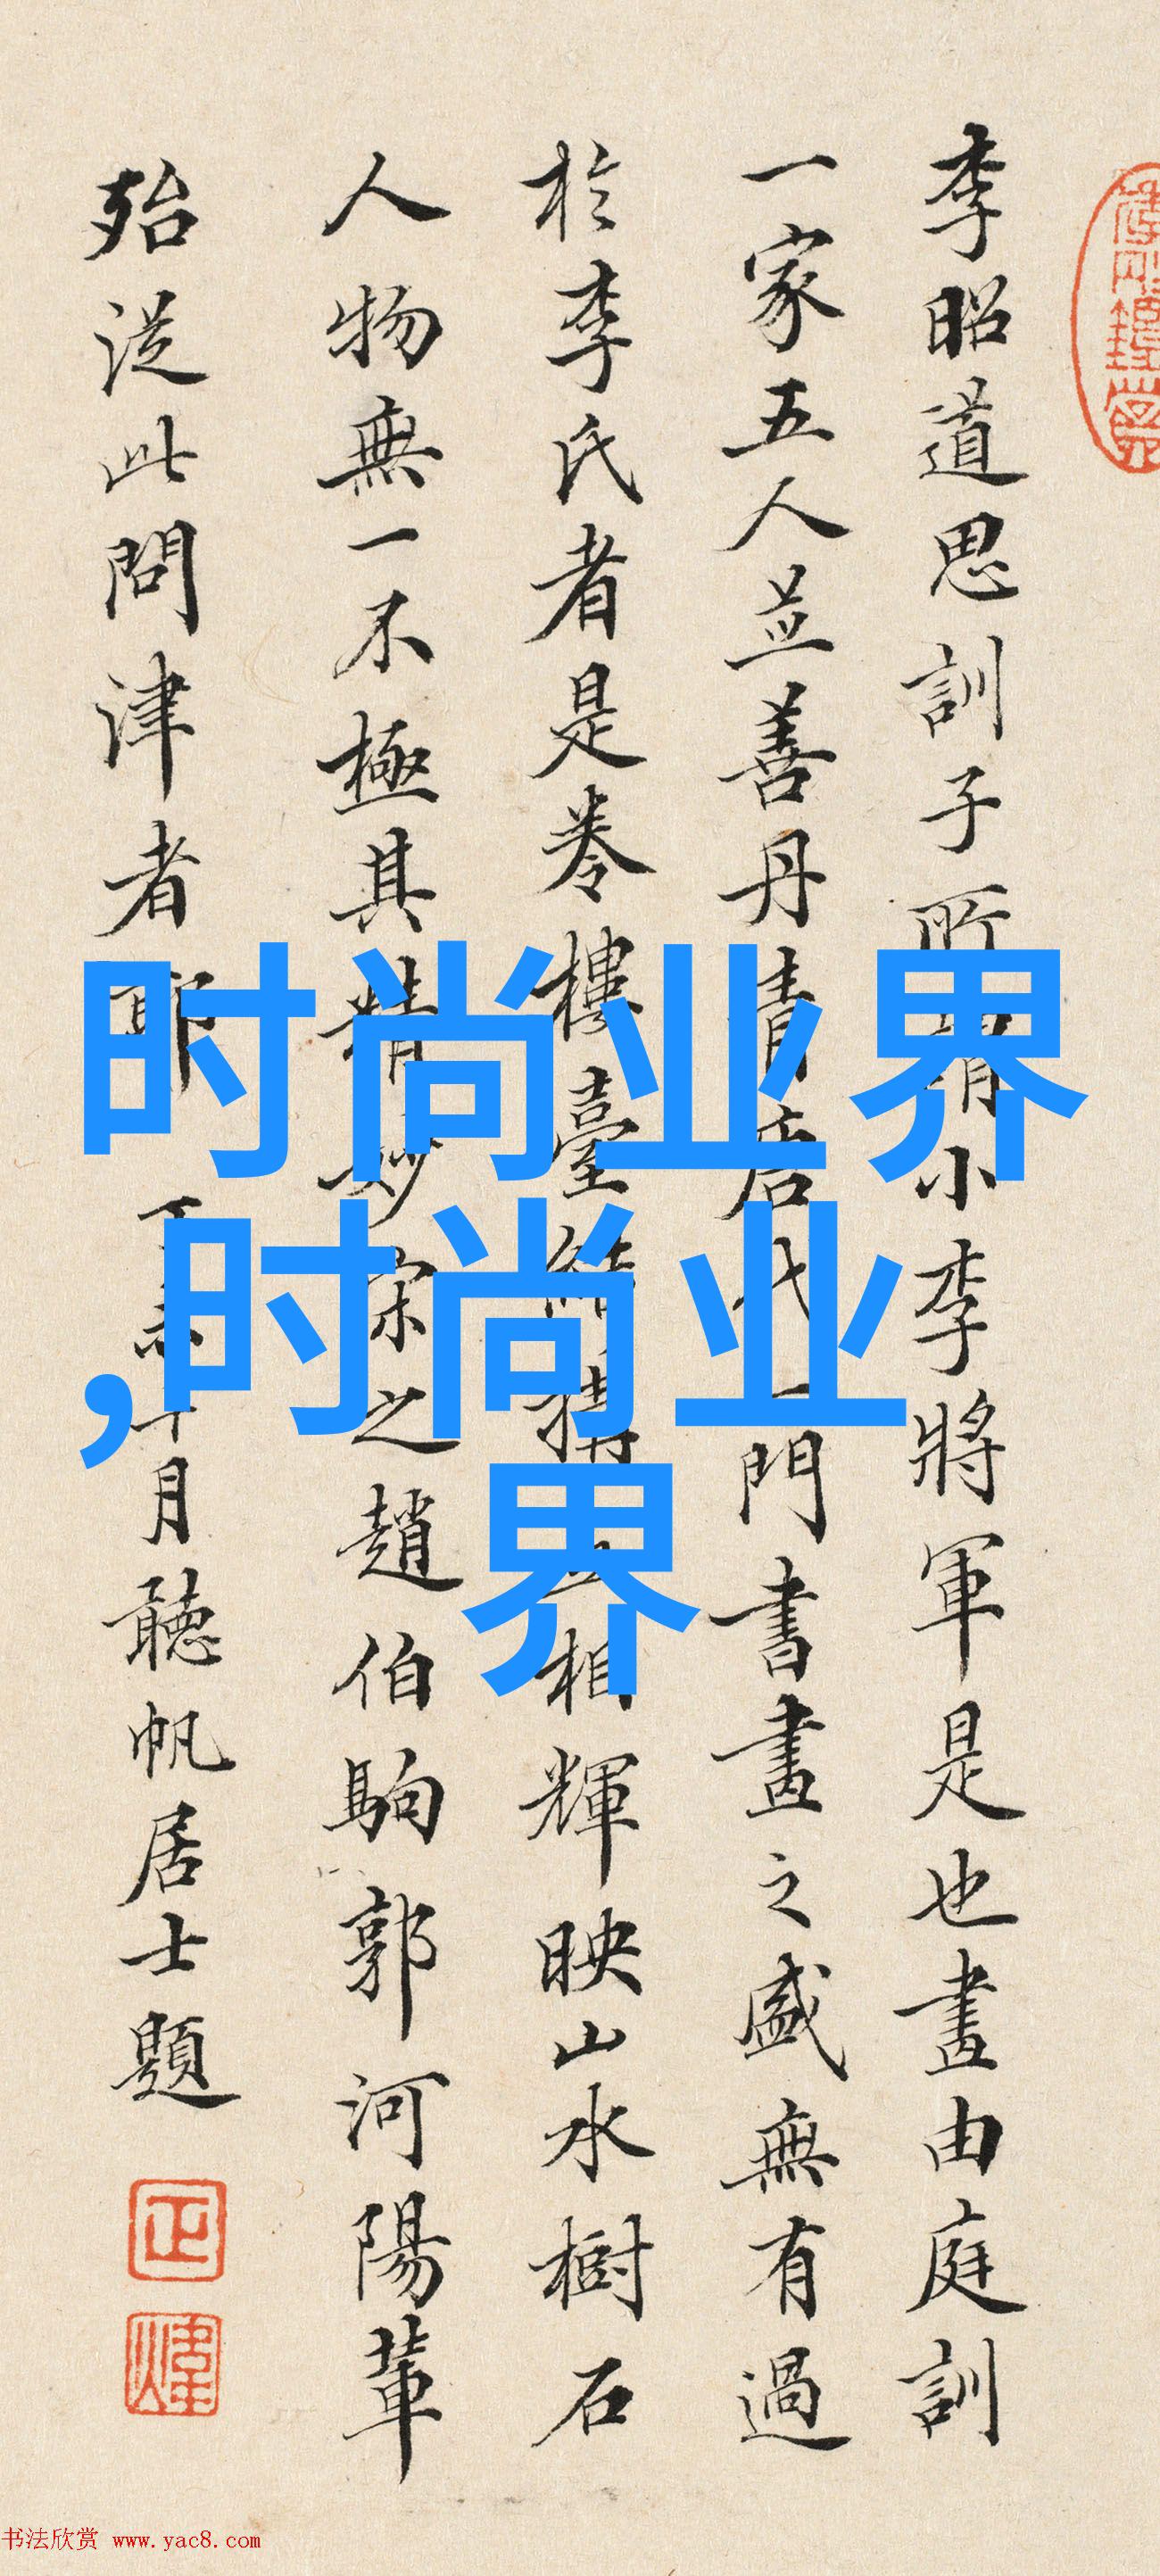 李昭道思訓子所謂小李將軍是也畫由庭訓
一家五人並善丹青唐代一門書畫之盛無有過
於李氏者是卷樓臺結構互相輝映山水樹石
人物無一不極其精妙宋之趙伯駒郭河陽輩
殆從此問津者耶 丁十月聽帆居士題
正
煒
时尚业界
,时尚业
界
书法欣赏 www.yac8.com